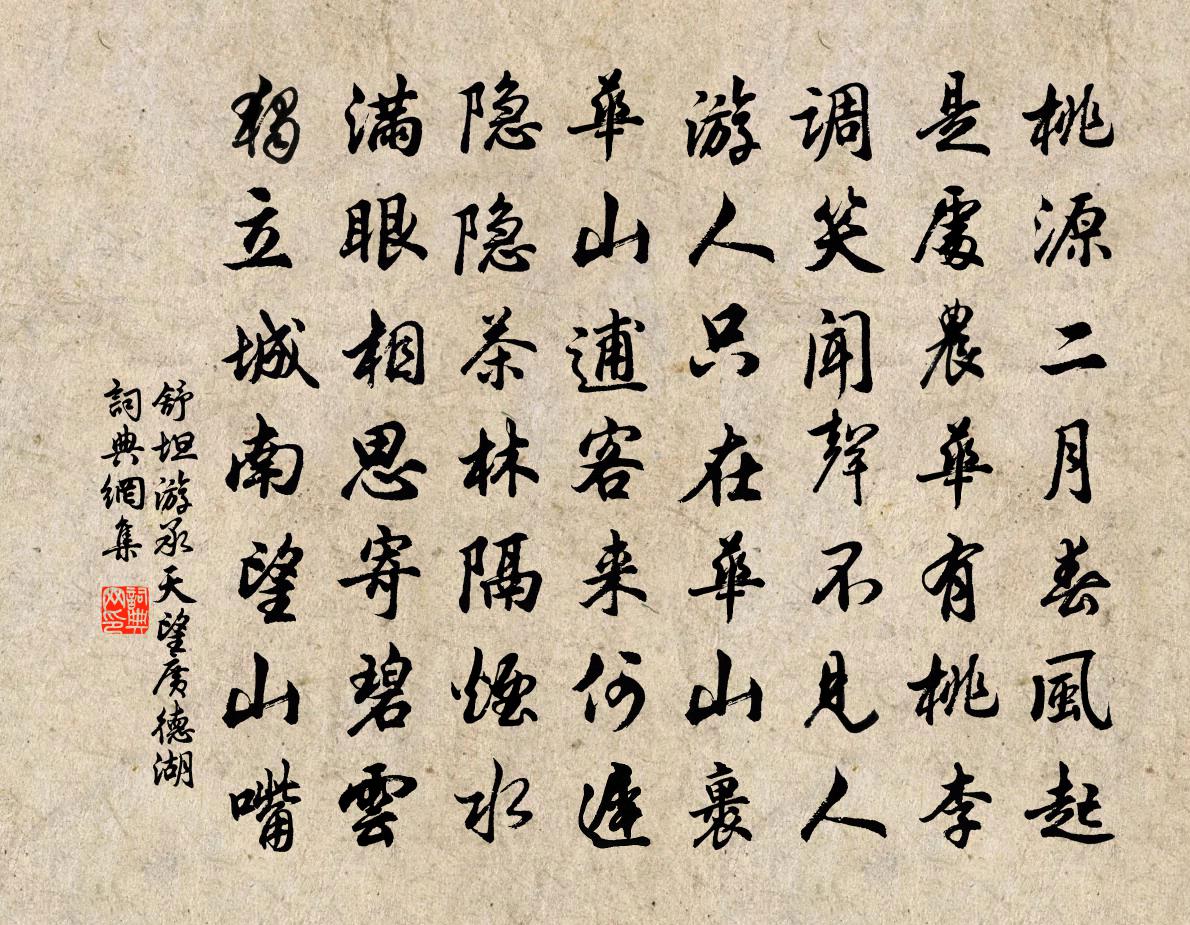 桃源二月春風起
是處農華有桃李
调笑闻聲不見人
游人只在華山裏
華山逋客来何遲
隐隐茶林隔煙水
满眼相思寄碧雲
獨立城南望山嘴
舒坦游承天望廣德湖
詞典網集
詞典网印